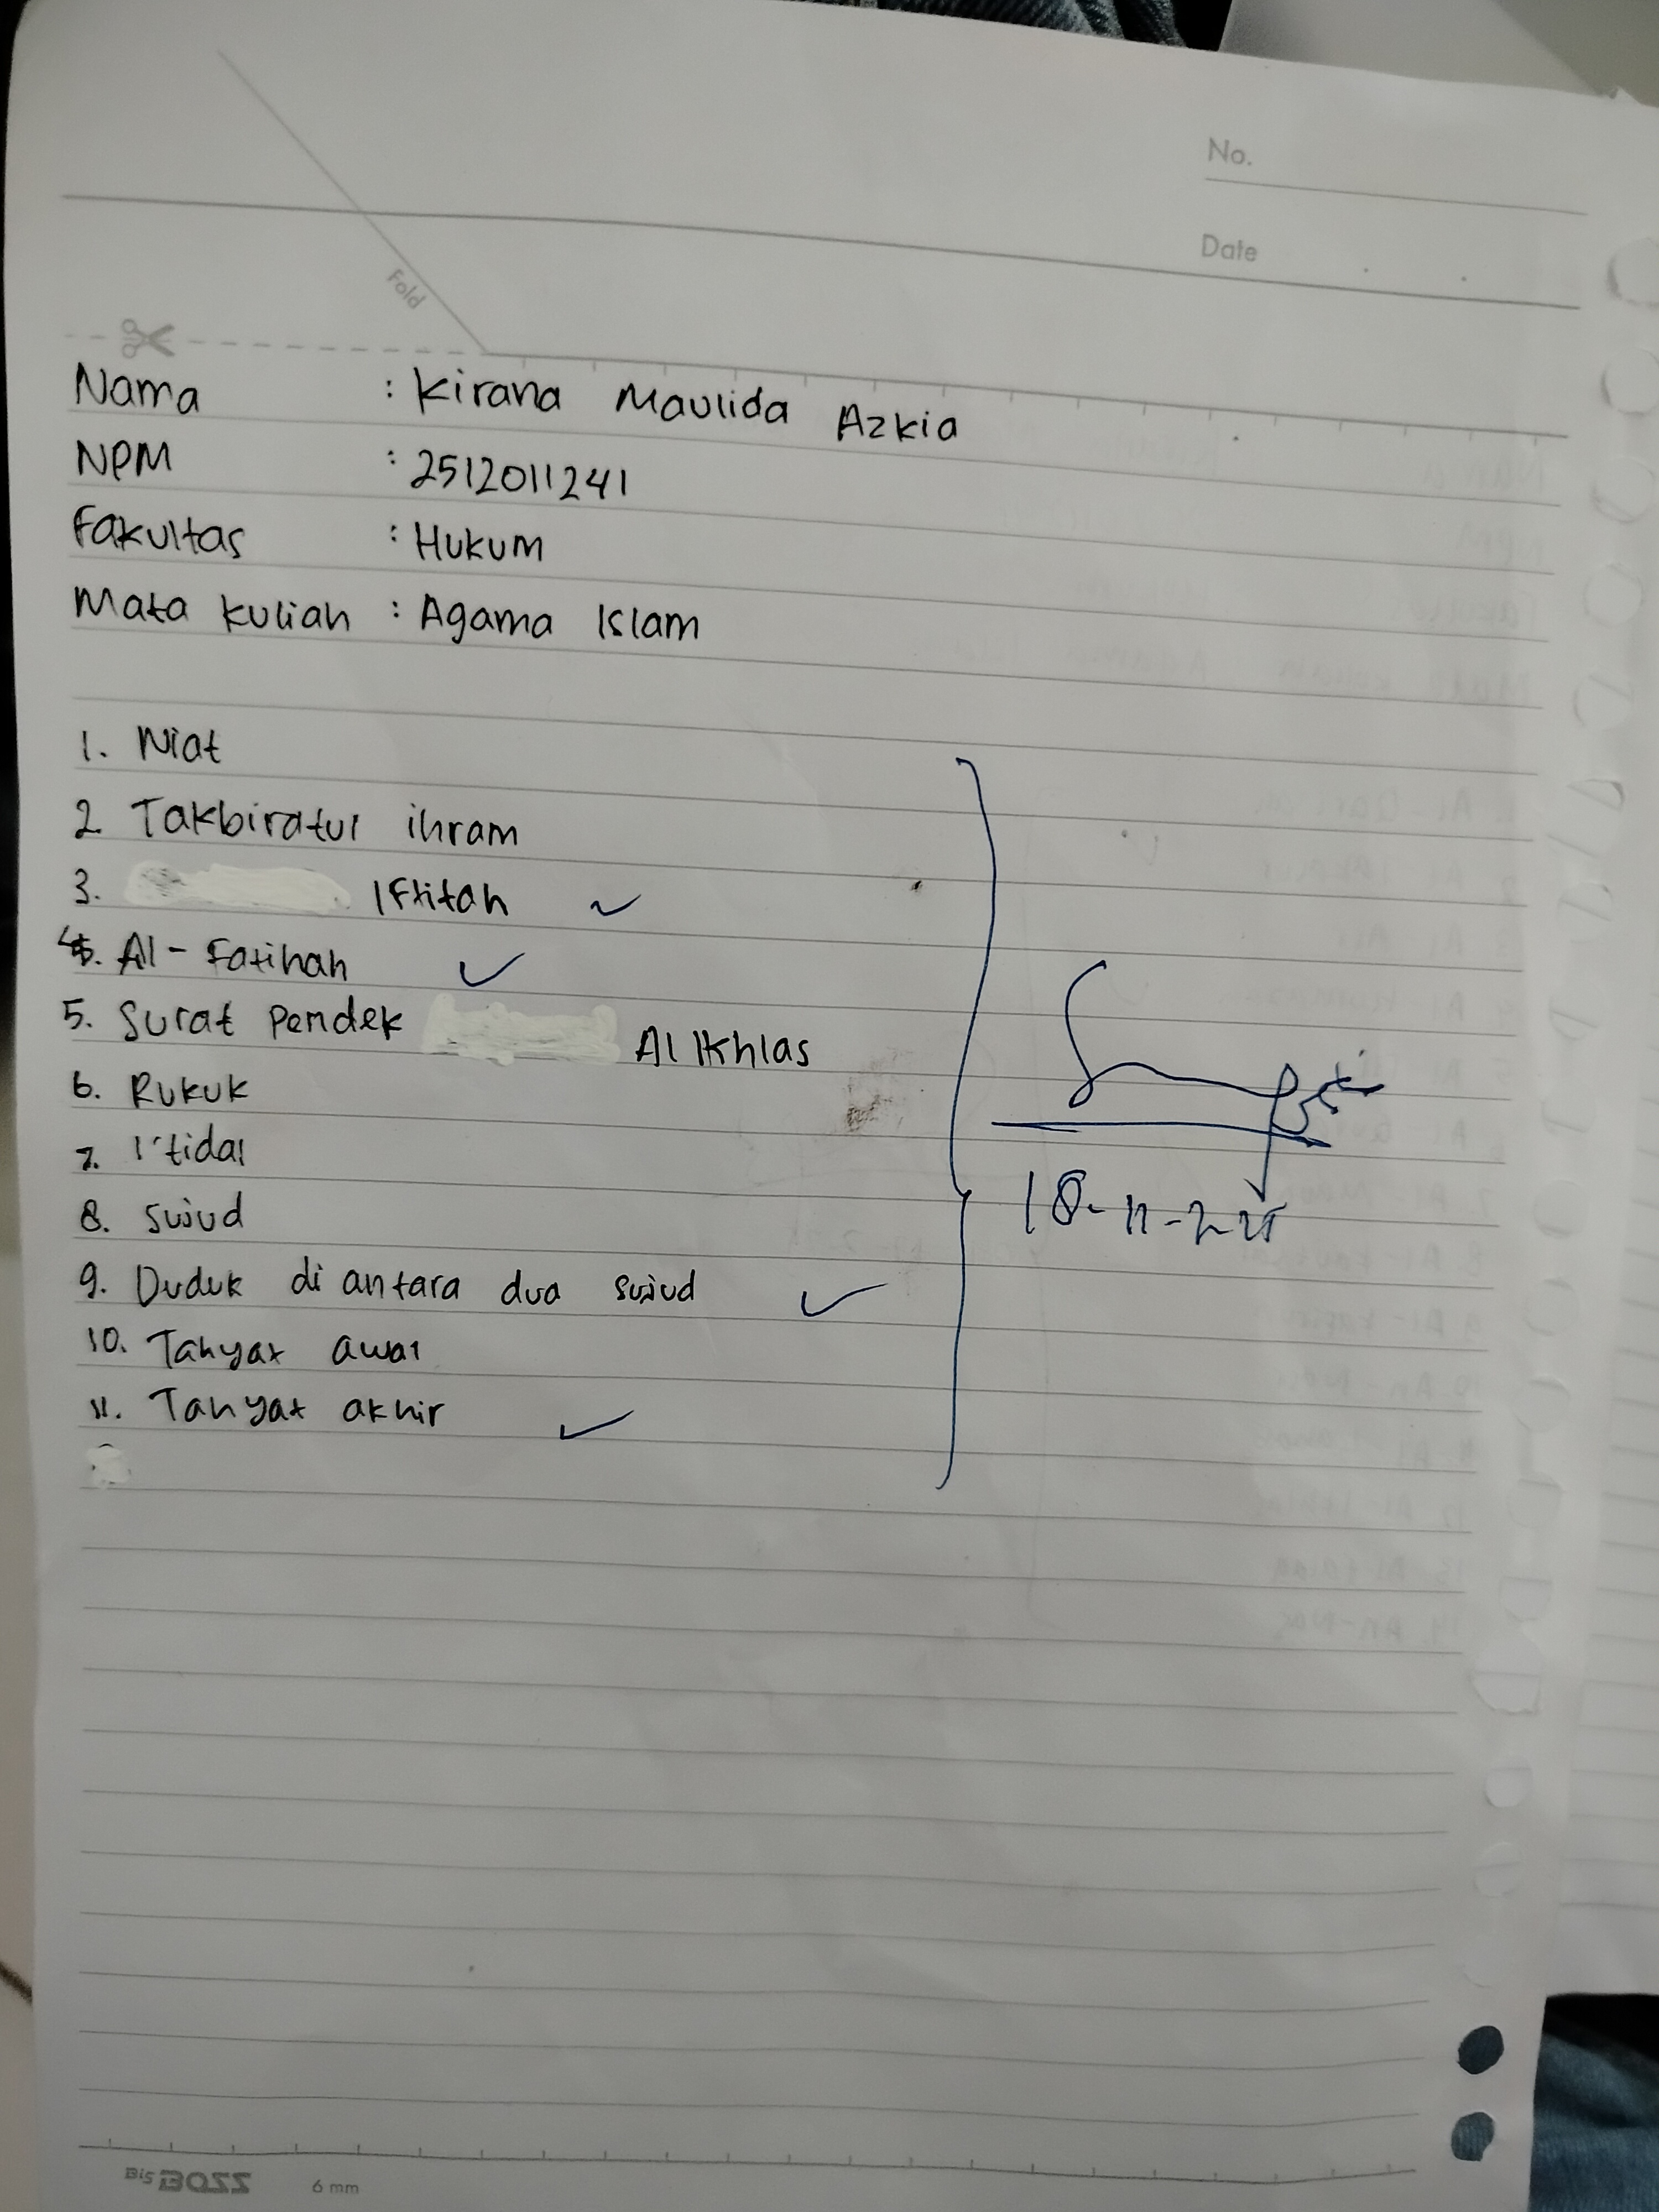 No.
Date
Fold
Nama : Kirana Maulida Azkia
NPM : 2512011241
Fakultas : Hukum
Mata kuliah : Agama Islam
1. Niat
2 Takbiratul ihram
3. Iftitah ✓
4. Al-Fatihah ✓
5. Surat pendek Al Ikhlas
6. Rukuk
7. I'tidal
8. Sujud
9. Duduk di antara dua sujud ✓
10. Tahyat awal
11. Tahyat akhir ✓
18-11-2
BiS BOSS 6 mm